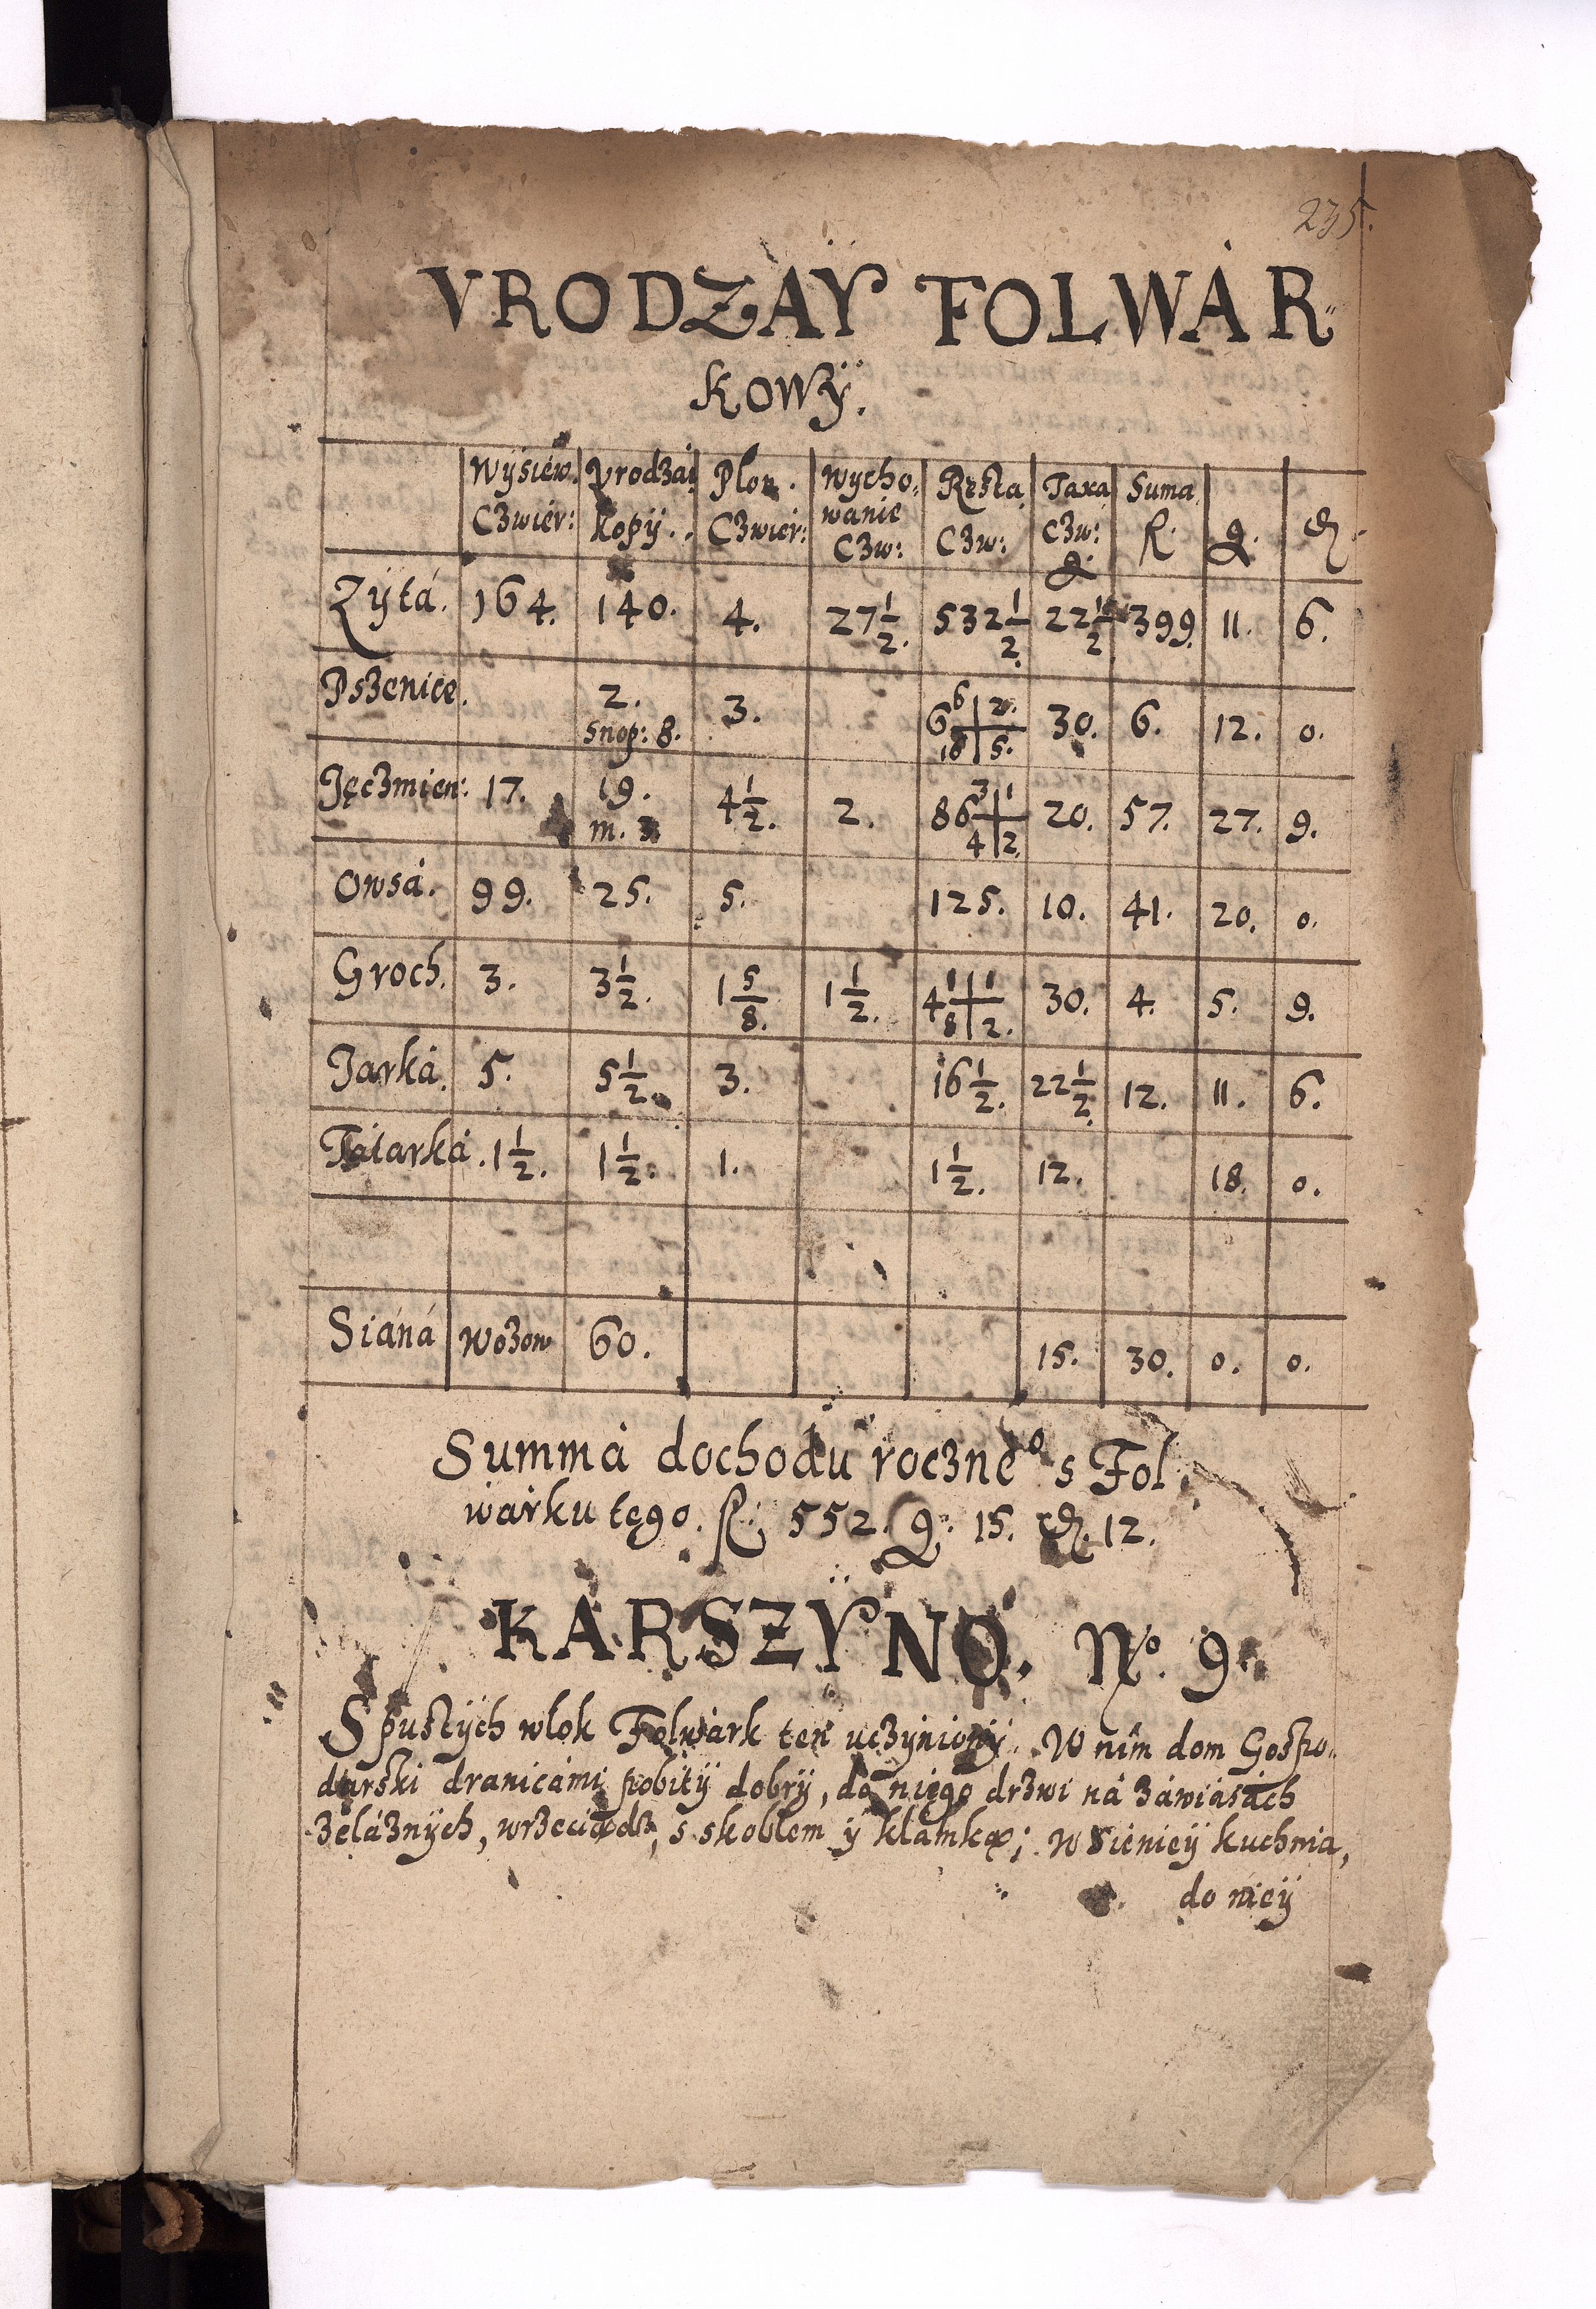 235.
VRODZAY FOLWAR„
kowÿ.
Wÿsiew. Czwier: | Vrodzaÿ kopÿ. | Plon. Czwier: | Wycho„ wanie Czw: | Resta Czw: | Taxa Czw: g. | Suma R. | g. | ₰.
Zÿtá. | 164. | 140. | 4. | 27 1/2. | 532 1/2. | 22 1/2 | 399 | 11. | 6.
Pszenice. | | 2. snop: 8. | 3. | | 6 6/18 2/5. | 30. | 6. | 12. | 0.
Jęczmien: | 17. | 19. m. | 4 1/2. | 2. | 86 3/4 1/2. | 20. | 57. | 27. | 9.
Owsá. | 99. | 25. | 5. | | 125. | 10. | 41. | 20. | 0.
Groch. | 3. | 3 1/2. | 1 5/8. | 1 1/2. | 4 1/8 1/2. | 30. | 4. | 5. | 9.
Jarká. | 5. | 5 1/2. | 3. | | 16 1/2. | 22 1/2. | 12. | 11. | 6.
Tátarká. | 1 1/2. | 1 1/2. | 1. | | 1 1/2. | 12. | | 18. | 0.
Siáná | Wozow | 60. | | | | 15. | 30. | 0. | 0.
Summá dochodu roczneº s Fol„
wárku tego. R: 552. g: 15. ₰. 12.
KARSZYNO. Nº. 9.
S pustÿch włok Folwark ten uczÿnionÿ. W nim dom Gospo„
darski dranicámi pobitÿ dobrÿ, do niego drzwi ná záwiásách
zeláznÿch, wrzeciądz, s skoblem ÿ klamką; W sieniey kuchnia,
do nieÿ